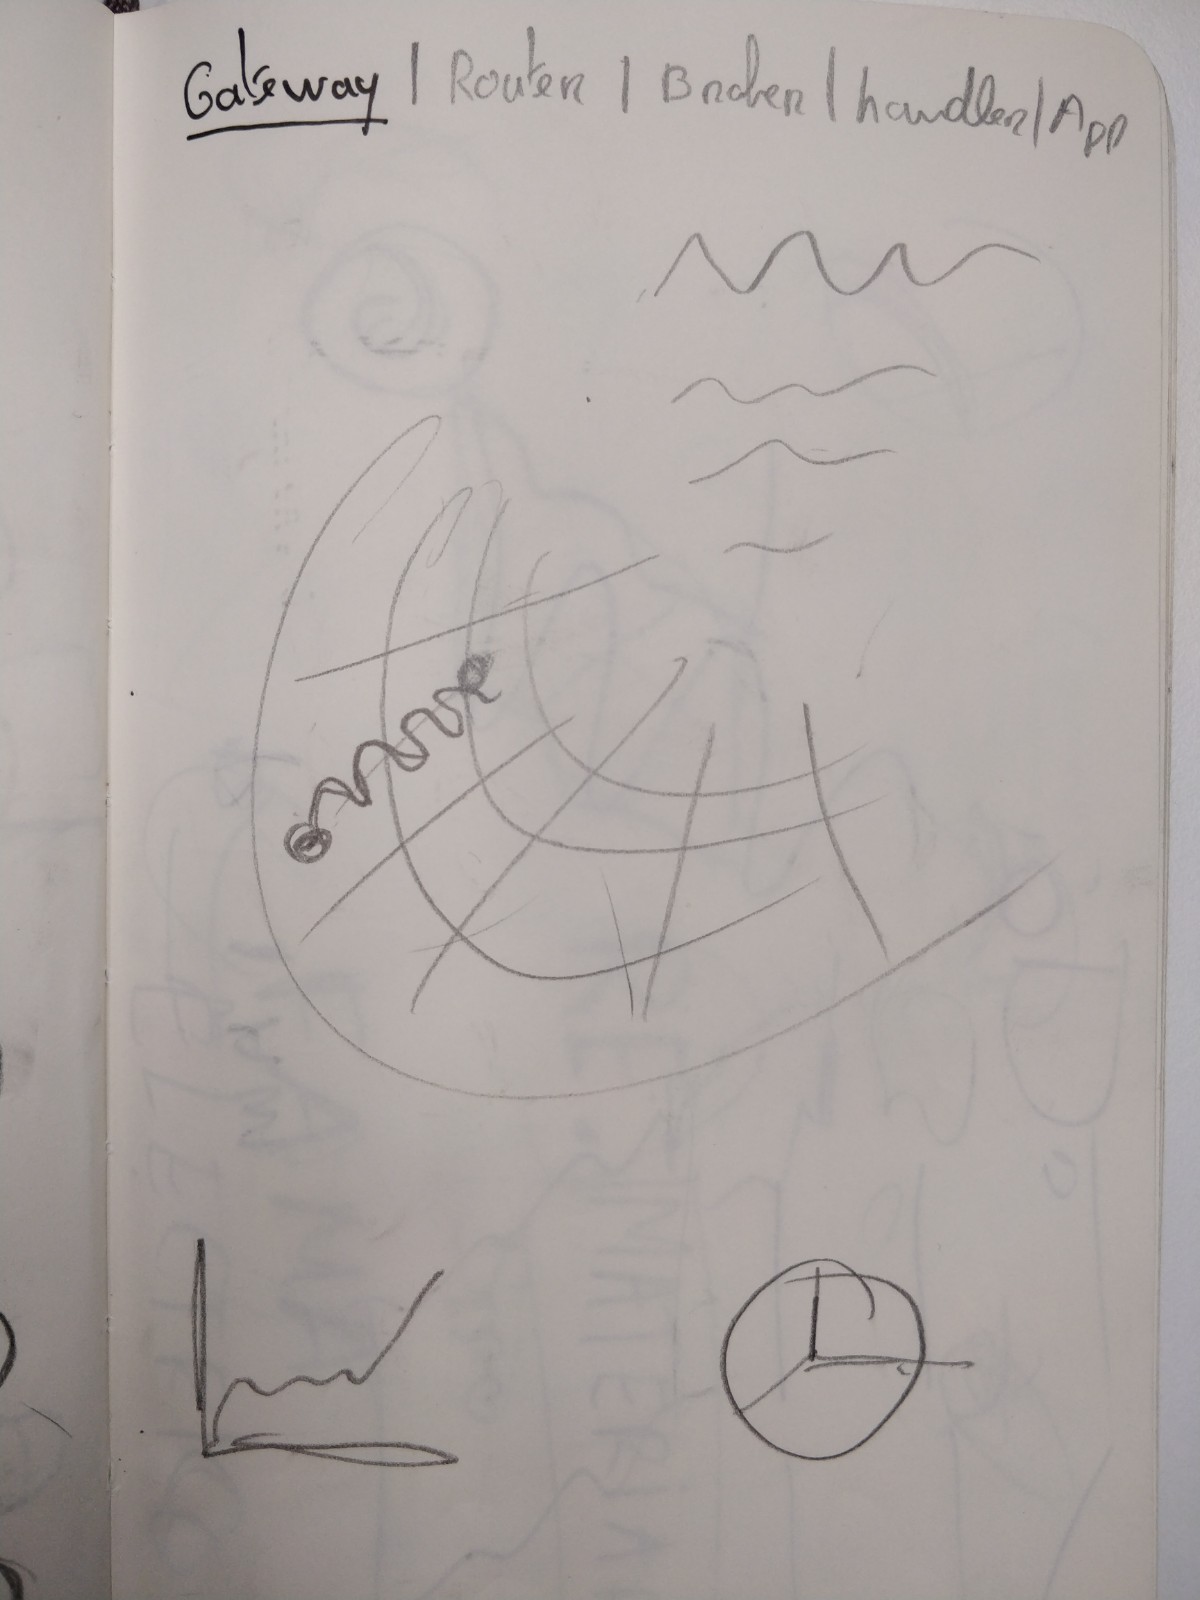 Gateway | Router | Broker | handler | App